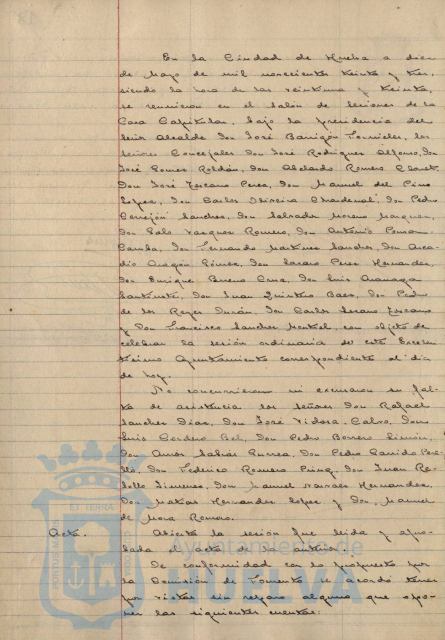 En la Ciudad de Huelva a diez
de Mayo de mil novecientos treinta y tres,
siendo la hora de las veintiuna y treinta,
se reunieron en el salón de sesiones de la
Casa Capitular, bajo la presidencia del
señor Alcalde Don José Barrigón Fornieles, los
señores Concejales Don José Rodríguez Alfonso, Don
José Gomez Roldán, Don Abelardo Romero Claret,
Don José Toscano Perea, Don Manuel del Pino
Lopez, Don Carlos Oliveira Chardenal, Don Pedro
Cerrejón Sanchez, Don Salvador Moreno Marquez,
Don Galo Vazquez Romero, Don Antonio Pomar
Camba, Don Fernando Martinez Sanchez, Don Arca-
dio Aragón Gómez, Don Lazaro Perez Hernandez,
Don Enrique Bueno Cruz, Don Luis
Don Juan Quintero Baez, Don Pedro
de los Reyes Durán, Don Carlos Lozano
y Don Francisco Sanchez con objeto de
celebrar la sesión ordinaria de este Excelen-
tísimo Ayuntamiento correspondiente al día
de hoy.
No concurrieron ni excusaron su fal-
ta de asistencia los señores Don Rafael
Sanchez Diaz, Don José Tidora Calvo, Don
Luis Cordero Bel, Don Pedro Borrero Limón,
Don Amós Sabrás Gurrea, Don Pedro Garrido Pere-
lló, Don Federico Romero Don Juan Re-
bollo Jimenez, Don Manuel Narvaez Hernandez,
Don Matías Hernandez Lopez y Don Manuel
de Mora Romero.
Acta. Abierta la sesión fué leida y apro-
bada el acta de la anterior.
De conformidad con lo propuesto por
la Comisión de Fomento se acordó tener
por vistas sin reparo alguno que opo-
ner las siguientes cuentas:
Ayuntamiento de
HUELVA